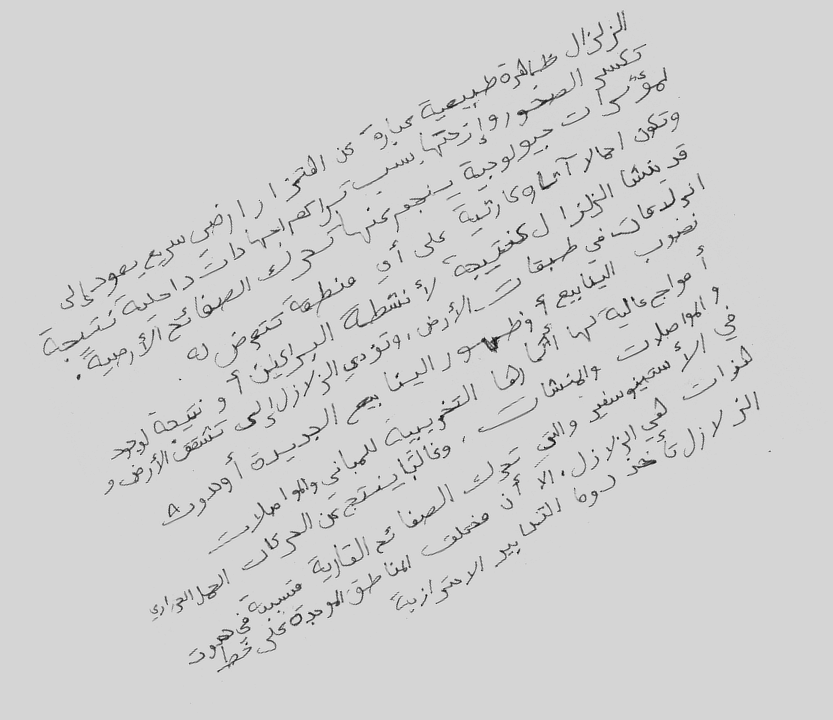 الزلزال ظاهرة طبيعية عبارة عن اهتزاز ارضي سريع يعود إلى
تكسر الصخور وإزاحتها بسبب تراكم اجهادات داخلية نتيجة
لمؤثرات جيولوجية ينجم عنها تحرك الصفائح الأرضية.
وتكون اجمالا آثاره كارثية على أي منطقة تتعرض له
قد ينشأ الزلزال كنتيجة لأنشطة البراكين أو نتيجة لوجود
انزلاقات في طبقات الأرض، وتؤدي الزلازل إلى تشقق الأرض و
نضوب الينابيع أو ظهور الينابيع الجديدة أو حدوث
أمواج عالية لها آثارها التخريبية للمباني والمواصلات
و المواصلات والمنشات، وغالبا ينتج عن الحركات الحمل الحراري
في الأستينوسفير والتي تحرك الصفائح القارية متسببة في حدوث
هزات هي الزلازل. الا أن مختلف المناطق الموجودة على خط
الزلازل تأخذ دوما التدابير الاحترازية